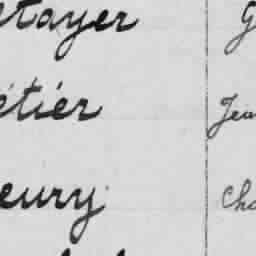 etayer G
étiér Jea
eury Cha